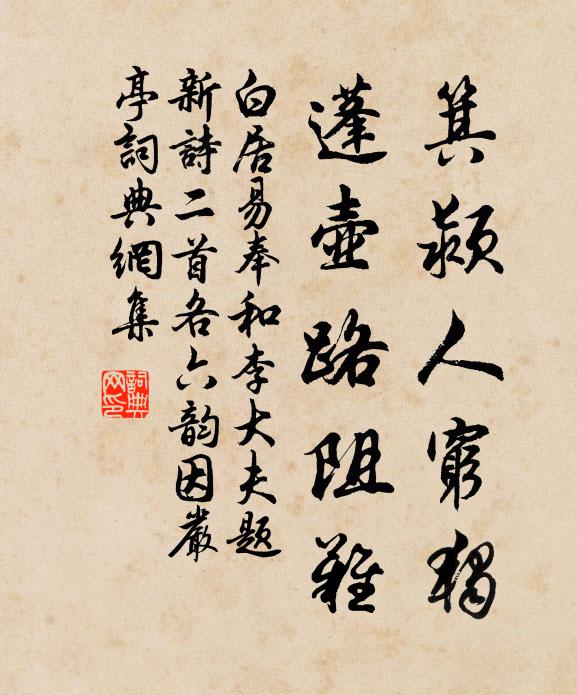 箕潁人窮獨
蓬壺路阻難
白居易奉和李大夫題
新詩二首各六韵因嚴
亭詞典網集
詞典
网印